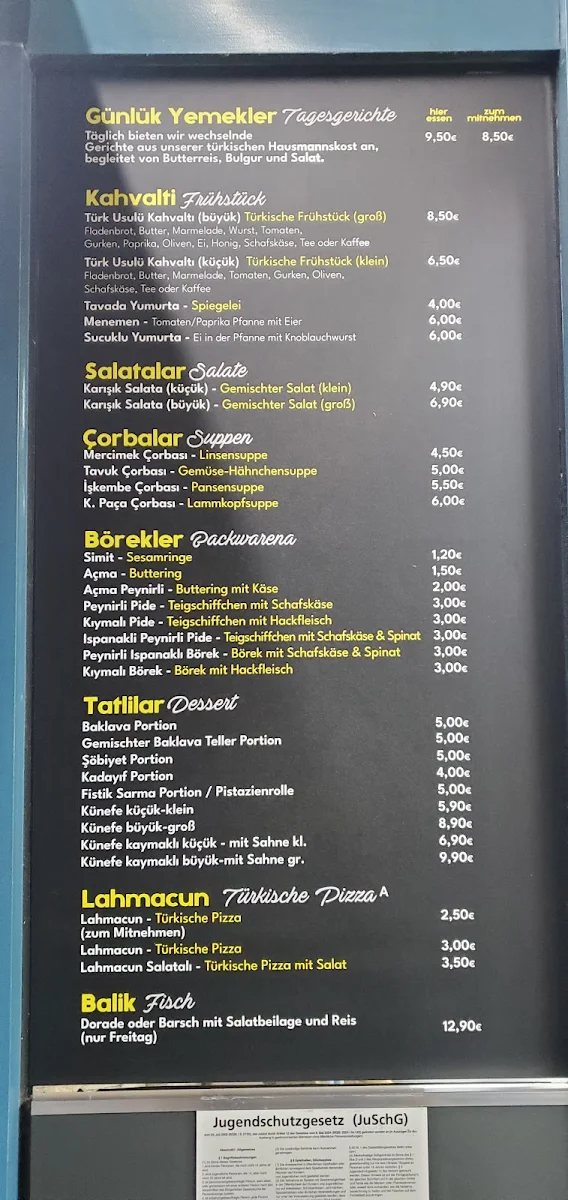 Günlük Yemekler Tagesgerichte hier essen zum mitnehmen
Täglich bieten wir wechselnde 9,50€ 8,50€
Gerichte aus unserer türkischen Hausmannskost an,
begleitet von Butterreis, Bulgur und Salat.
Kahvalti Frühstück
Türk Usulü Kahvaltı (büyük) Türkische Frühstück (groß) 8,50€
Fladenbrot, Butter, Marmelade, Wurst, Tomaten,
Gurken, Paprika, Oliven, Ei, Honig, Schafskäse, Tee oder Kaffee
Türk Usulü Kahvaltı (küçük) Türkische Frühstück (klein) 6,50€
Fladenbrot, Butter, Marmelade, Tomaten, Gurken, Oliven,
Schafskäse, Tee oder Kaffee
Tavada Yumurta - Spiegelei 4,00€
Menemen - Tomaten/Paprika Pfanne mit Eier 6,00€
Sucuklu Yumurta - Ei in der Pfanne mit Knoblauchwurst 6,00€
Salatalar Salate
Karışık Salata (küçük) - Gemischter Salat (klein) 4,90€
Karışık Salata (büyük) - Gemischter Salat (groß) 6,90€
Çorbalar Suppen
Mercimek Çorbası - Linsensuppe 4,50€
Tavuk Çorbası - Gemüse-Hähnchensuppe 5,00€
İşkembe Çorbası - Pansensuppe 5,50€
K. Paça Çorbası - Lammkopfsuppe 6,00€
Börekler Backwarena
Simit - Sesamringe 1,20€
Açma - Buttering 1,50€
Açma Peynirli - Buttering mit Käse 2,00€
Peynirli Pide - Teigschiffchen mit Schafskäse 3,00€
Kıymalı Pide - Teigschiffchen mit Hackfleisch 3,00€
Ispanakli Peynirli Pide - Teigschiffchen mit Schafskäse & Spinat 3,00€
Peynirli Ispanaklı Börek - Börek mit Schafskäse & Spinat 3,00€
Kıymalı Börek - Börek mit Hackfleisch 3,00€
Tatlilar Dessert
Baklava Portion 5,00€
Gemischter Baklava Teller Portion 5,00€
Şöbiyet Portion 5,00€
Kadayıf Portion 4,00€
Fistik Sarma Portion / Pistazienrolle 5,00€
Künefe küçük-klein 5,90€
Künefe büyük-groß 8,90€
Künefe kaymaklı küçük - mit Sahne kl. 6,90€
Künefe kaymaklı büyük-mit Sahne gr. 9,90€
Lahmacun Türkische Pizza A
Lahmacun - Türkische Pizza 2,50€
(zum Mitnehmen)
Lahmacun - Türkische Pizza 3,00€
Lahmacun Salatalı - Türkische Pizza mit Salat 3,50€
Balik Fisch
Dorade oder Barsch mit Salatbeilage und Reis 12,90€
(nur Freitag)
Jugendschutzgesetz (JuSchG)